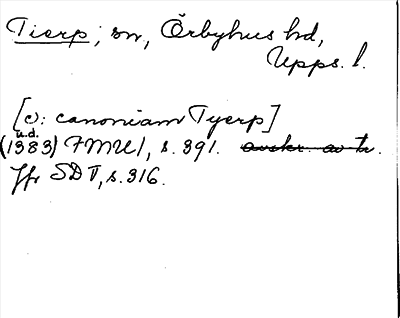 Tierp; sn, Örbyhus hd,
Upps. l.
[c: canoniam Tyerp]
u.d.
(1383) FMU 1, s. 391. avskr. av tr.
Jfr SD V, s. 316.